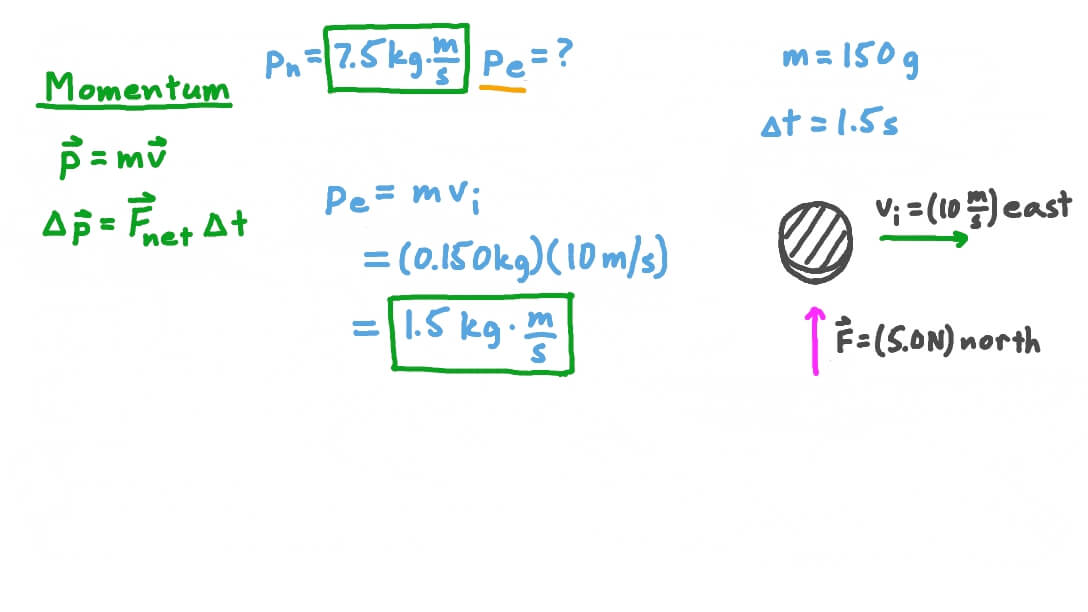 Momentum
p⃗ = mv⃗
Δp⃗ = F⃗net Δt
Pn = 7.5 kg·m/s Pe = ?
Pe = mvi
= (0.150kg)(10 m/s)
= 1.5 kg·m/s
m = 150 g
Δt = 1.5 s
vi = (10 m/s) east
F⃗ = (5.0N) north